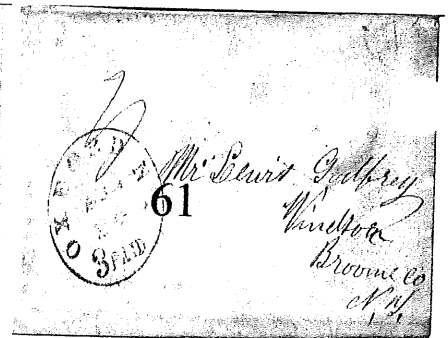 OXFORD
3 PAID
61
Mr Lewis Godfrey
Windsor
Broome Co
N.Y.